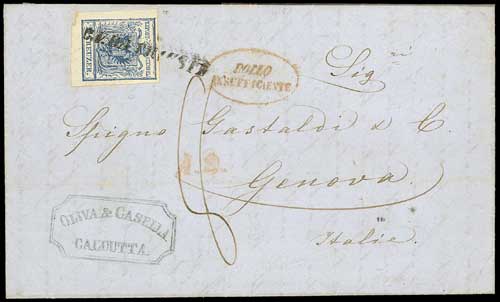 KREUZER
BOLLO
INSUFFICIENTE
Sigri
Spigno Gastaldi & C.
A.2.
Genova
Italie
OLIVA & CASELLA
CALCUTTA.